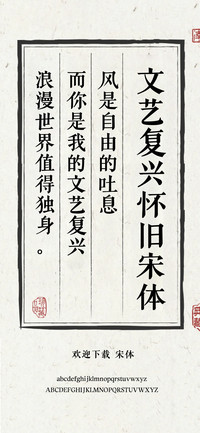 文艺复兴怀旧宋体
风是自由的吐息
而你是我的文艺复兴
浪漫世界值得独身。
欢迎下载 宋体
abcdefghijklmnopqrstuvwxyz
ABCDEFGHIJKLMNOPQRSTUVWXYZ